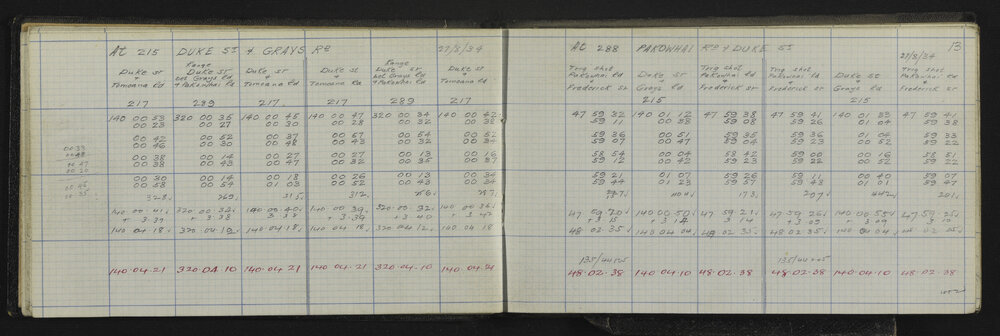 AT 215 DUKE ST & GRAYS RD 27/3/34
Duke St & Tomoana Rd
Range Duke St bet Grays Rd & Pakowhai Rd
Duke St & Tomoana Rd
Duke St & Tomoana Rd
Range Duke St bet Grays Rd & Pakowhai Rd
Duke St & Tomoana Rd
217 289 217 217 289 217
140 00 53 320 00 35 140 00 45 140 00 47 320 00 34 140 00 42
00 23 00 27 00 30 00 28 00 32 00 38
00 42 00 52 00 37 00 57 00 54 00 52
00 46 00 30 00 48 00 43 00 32 00 34
00 38 00 14 00 27 00 27 00 13 00 16
00 38 00 43 00 47 00 32 00 35 00 37
00 30 00 14 00 18 00 26 00 13 00 34
00 58 00 54 01 03 00 52 00 43 00 34
328 269 315 312 256
140 00 41 320 00 32 140 00 40 140 00 39 320 00 32
+ 3 39 + 3 40
140 04 18 140 04 18 140 04 18 140 04 18
140.04.21 320.04.10 140.04.21 140.04.21 320.04.10 140.04.21
AT 288 PAKOWHAI RD & DUKE ST 13
27/3/34
Trig Shot Pakowhai Rd & Frederick St
Duke St & Grays Rd
Trig Shot Pakowhai Rd & Frederick St
Trig Shot Pakowhai Rd & Frederick St
Duke St & Grays Rd
Trig Shot Pakowhai Rd & Frederick St
215 215
47 59 32 140 01 12 47 59 38 47 59 41 140 01 33 47 59 41
59 11 00 38 59 08 59 26 01 04 59 38
59 36 00 51 59 35 59 36 01 04 59 33
59 07 00 47 59 04 59 23 00 52 59 22
58 54 00 04 58 42 59 00 00 16 58 51
59 12 00 42 59 23 59 22 00 52 59 22
59 21 01 07 59 26 59 11 00 40 59 07
59 44 01 23 59 57 59 48 01 01 59 47
404 173 207 442 201
47 59 20 140 00 50 47 59 21 47 59 26 140 00 55 47 59 25
+ 3 15 + 3 14 3 14 + 3 09 + 3 09
48 02 35 140 04 04 48 02 35 48 02 35 140 04 04
48.02.38 140.04.10 48.02.38 48.02.38 140.04.10 48.02.38